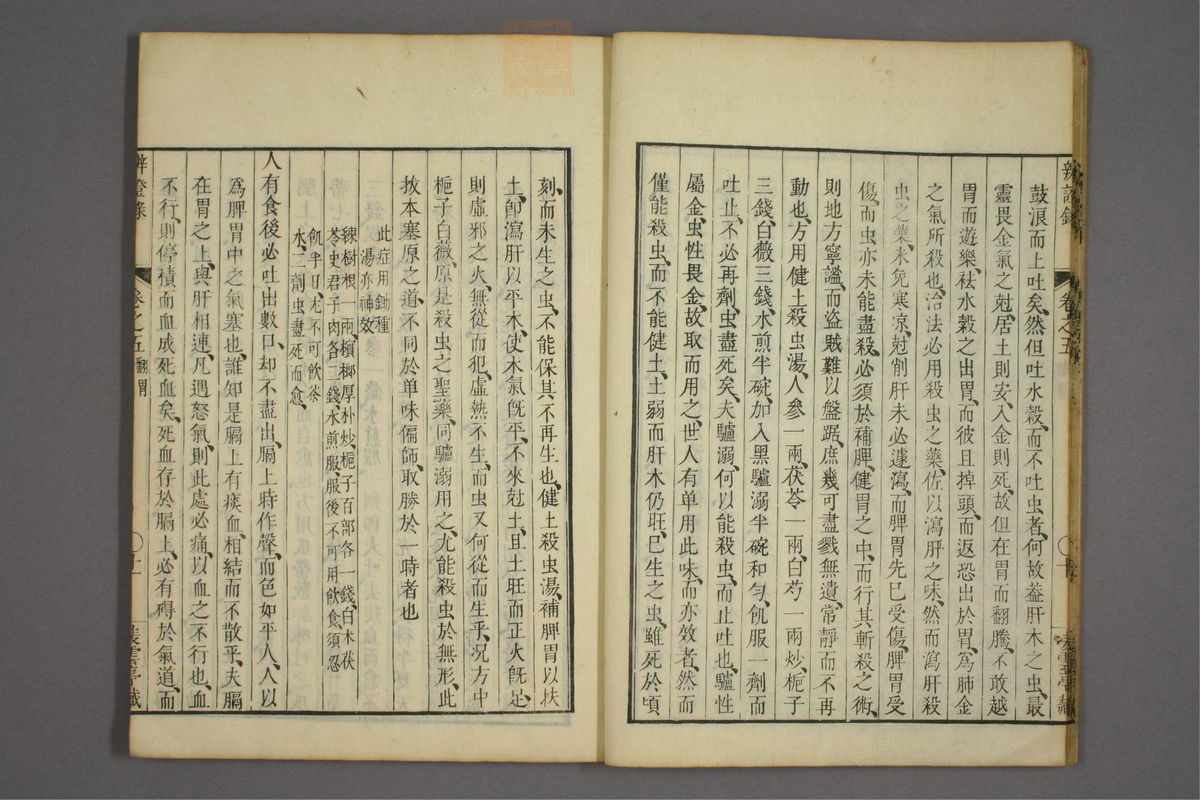 鼓浪而上吐矣、然但吐水穀、而不吐虫者、何故葢肝木之虫、最
靈畏金氣之尅、居土則安、入金則死、故但在胃而翻騰、不敢越
胃而遊樂、祛水穀之出胃、而彼且掉頭、而返恐出於胃、爲肺金
之氣所殺也、治法必用殺虫之藥、佐以瀉肝之味、然而瀉肝殺
虫之藥、未免寒凉、尅削肝未必遽瀉、而脾胃先已受傷、脾胃受
傷、而虫亦未能盡殺、必須於補脾健胃之中、而行其斬殺之術、
則地方寧謐、而盜賊難以盤踞、庶幾可盡戮無遺、常靜而不再
動也、方用健土殺虫湯、人參一兩、茯苓一兩、白芍一兩炒、梔子
三錢、白薇三錢、水煎半碗、加入黑驢溺半碗和勻、飢服一劑而
吐止、不必再劑、虫盡死矣、夫驢溺何以能殺虫、而止吐也、驢性
屬金、虫性畏金、故取而用之、世人有单用此味、而亦效者、然而
僅能殺虫、而不能健土、土弱而肝木仍旺、已生之虫、雖死於頃
辨證錄
卷之五
刻、而未生之虫、不能保其不再生也、健土殺虫湯、補脾胃以扶
土、卽瀉肝以平木、使木氣旣平、不來尅土、且土旺而正火旣足、
則虛邪之火、無從而犯、虛熱不生、而虫又何從而生乎、况方中
梔子白薇、原是殺虫之聖藥、同驢溺用之、尤能殺虫、於無形、此
拔本塞原之道、不同於单味偏師、取勝於一時者也
此症用鋤種
湯亦神效
練樹根一兩檳榔厚朴炒、梔子百部各一錢、白朮茯
苓史君子肉各三錢、水煎服、服後不可用飲食、須忍
飢半日、尤不可飲茶
水、二劑虫盡死而愈、
人有食後必吐出數口、却不盡出、膈上時作聲、而色如平人、人以
爲脾胃中之氣塞也、誰知是膈上有痰血、相結而不散乎、夫膈
在胃之上、與肝相連、凡遇怒氣、則此處必痛、以血之不行也、血
不行、則停積而血成死血矣、死血存於膈上、必有碍於氣道、而
辨證錄
卷之五
翻胃